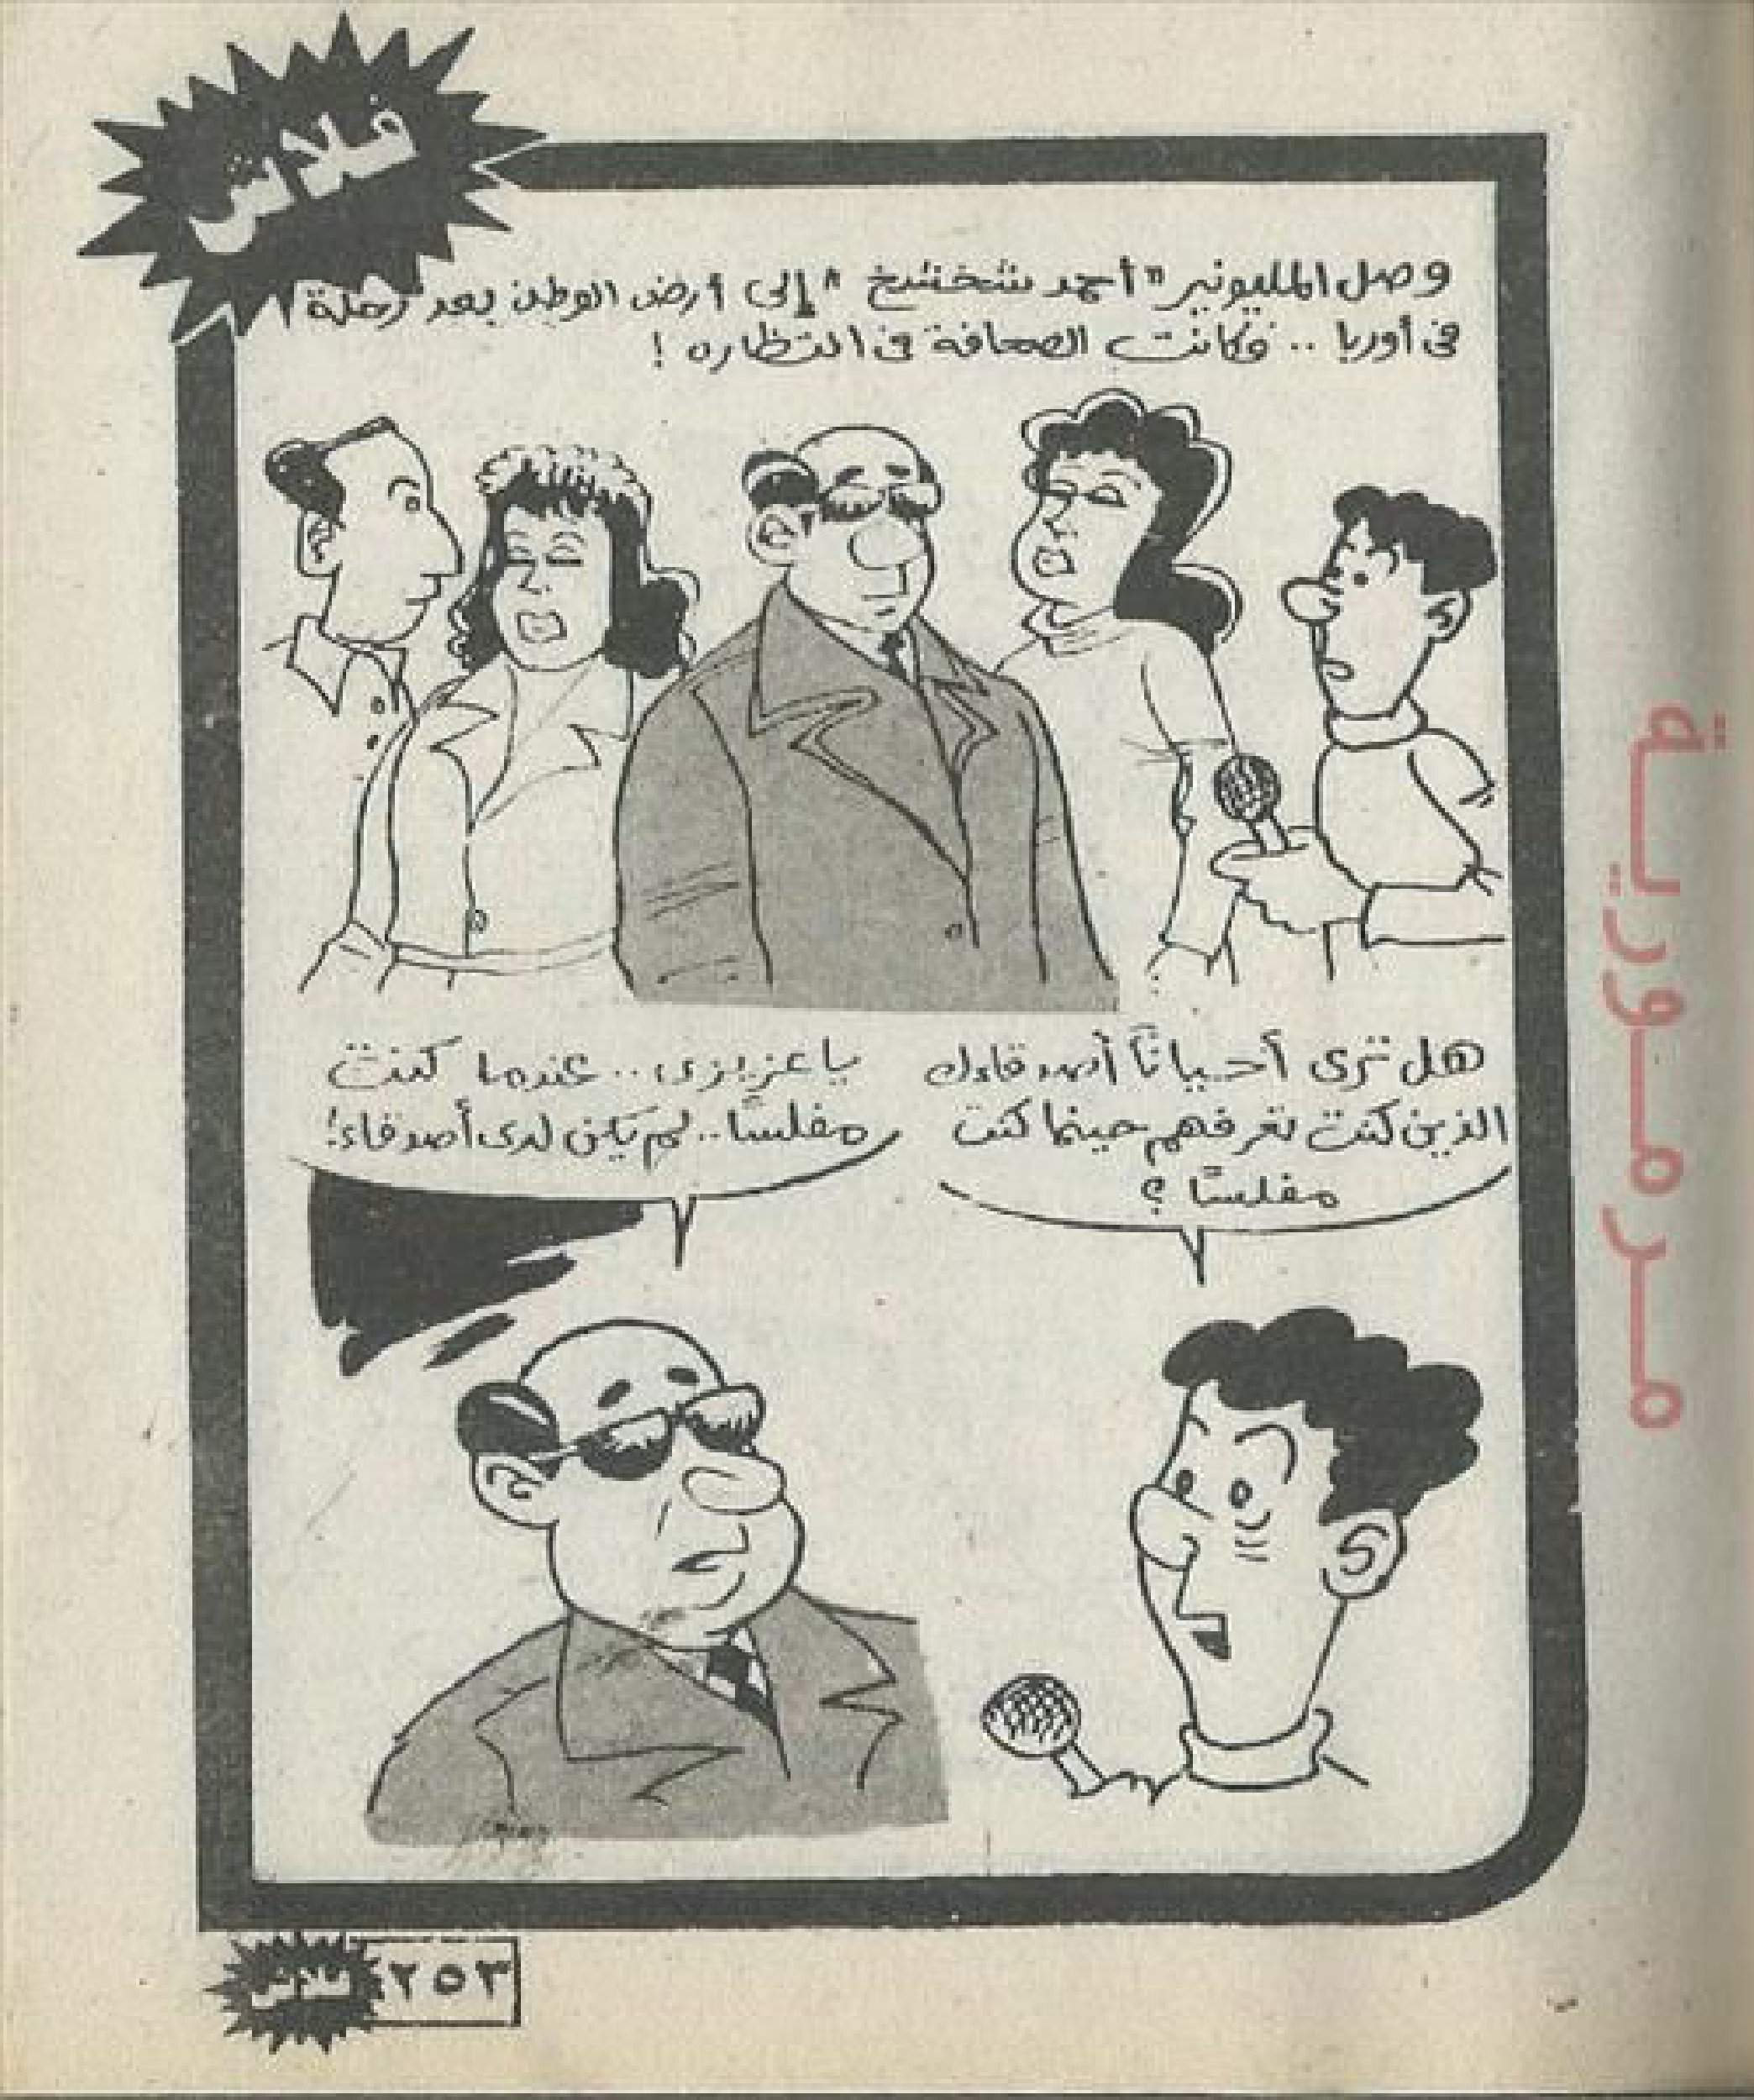 فلاش
وصل المليونير "أحمد شخشخ" إلى أرض الوطن بعد رحلة
فى أوربا .. وكانت الصحافة فى انتظاره !
هل ترى أحياناً أصدقاءك
الذين كنت تعرفهم حينما كنت
مفلسًا ؟
ياعزيزى .. عندما كنت
مفلسًا .. لم يكن لدى أصدقاء !
فلاش ٢٥٣
مرمورية